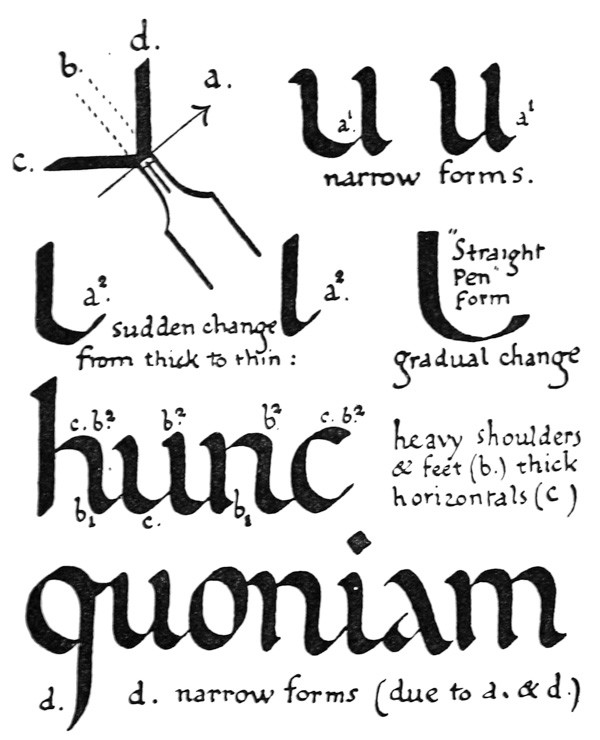 d.
b.
a.
c.
u u
a¹. a¹
narrow forms.
ɩ a². ɩ a². ɩ "Straight
Pen"
form
sudden change
from thick to thin :
gradual change
c. b.² b.² b.² c. b.²
hunc
b₁ c. b₁
heavy shoulders
& feet (b.) thick
horizontals (c)
quoniam
d. d. narrow forms (due to a. & d.)